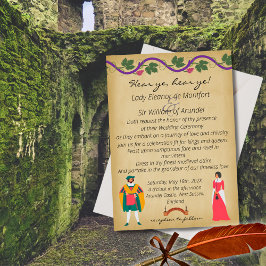 Hear ye, hear ye!
Lady Eleanor de Montfort
&
Sir William of Arundel
Doth request the honor of thy presence
at their Wedding Ceremony
as they embark on a journey of love and chivalry
Join us for a celebration fit for kings and queens
Feast upon sumptuous fare and revel in
merriment
Dress in thy finest medieval attire
And partake in the grandeur of our timeless love
Saturday, May 18th, 20XX
in the afternoon
Arundel Castle, West Sussex,
England
reception to follow